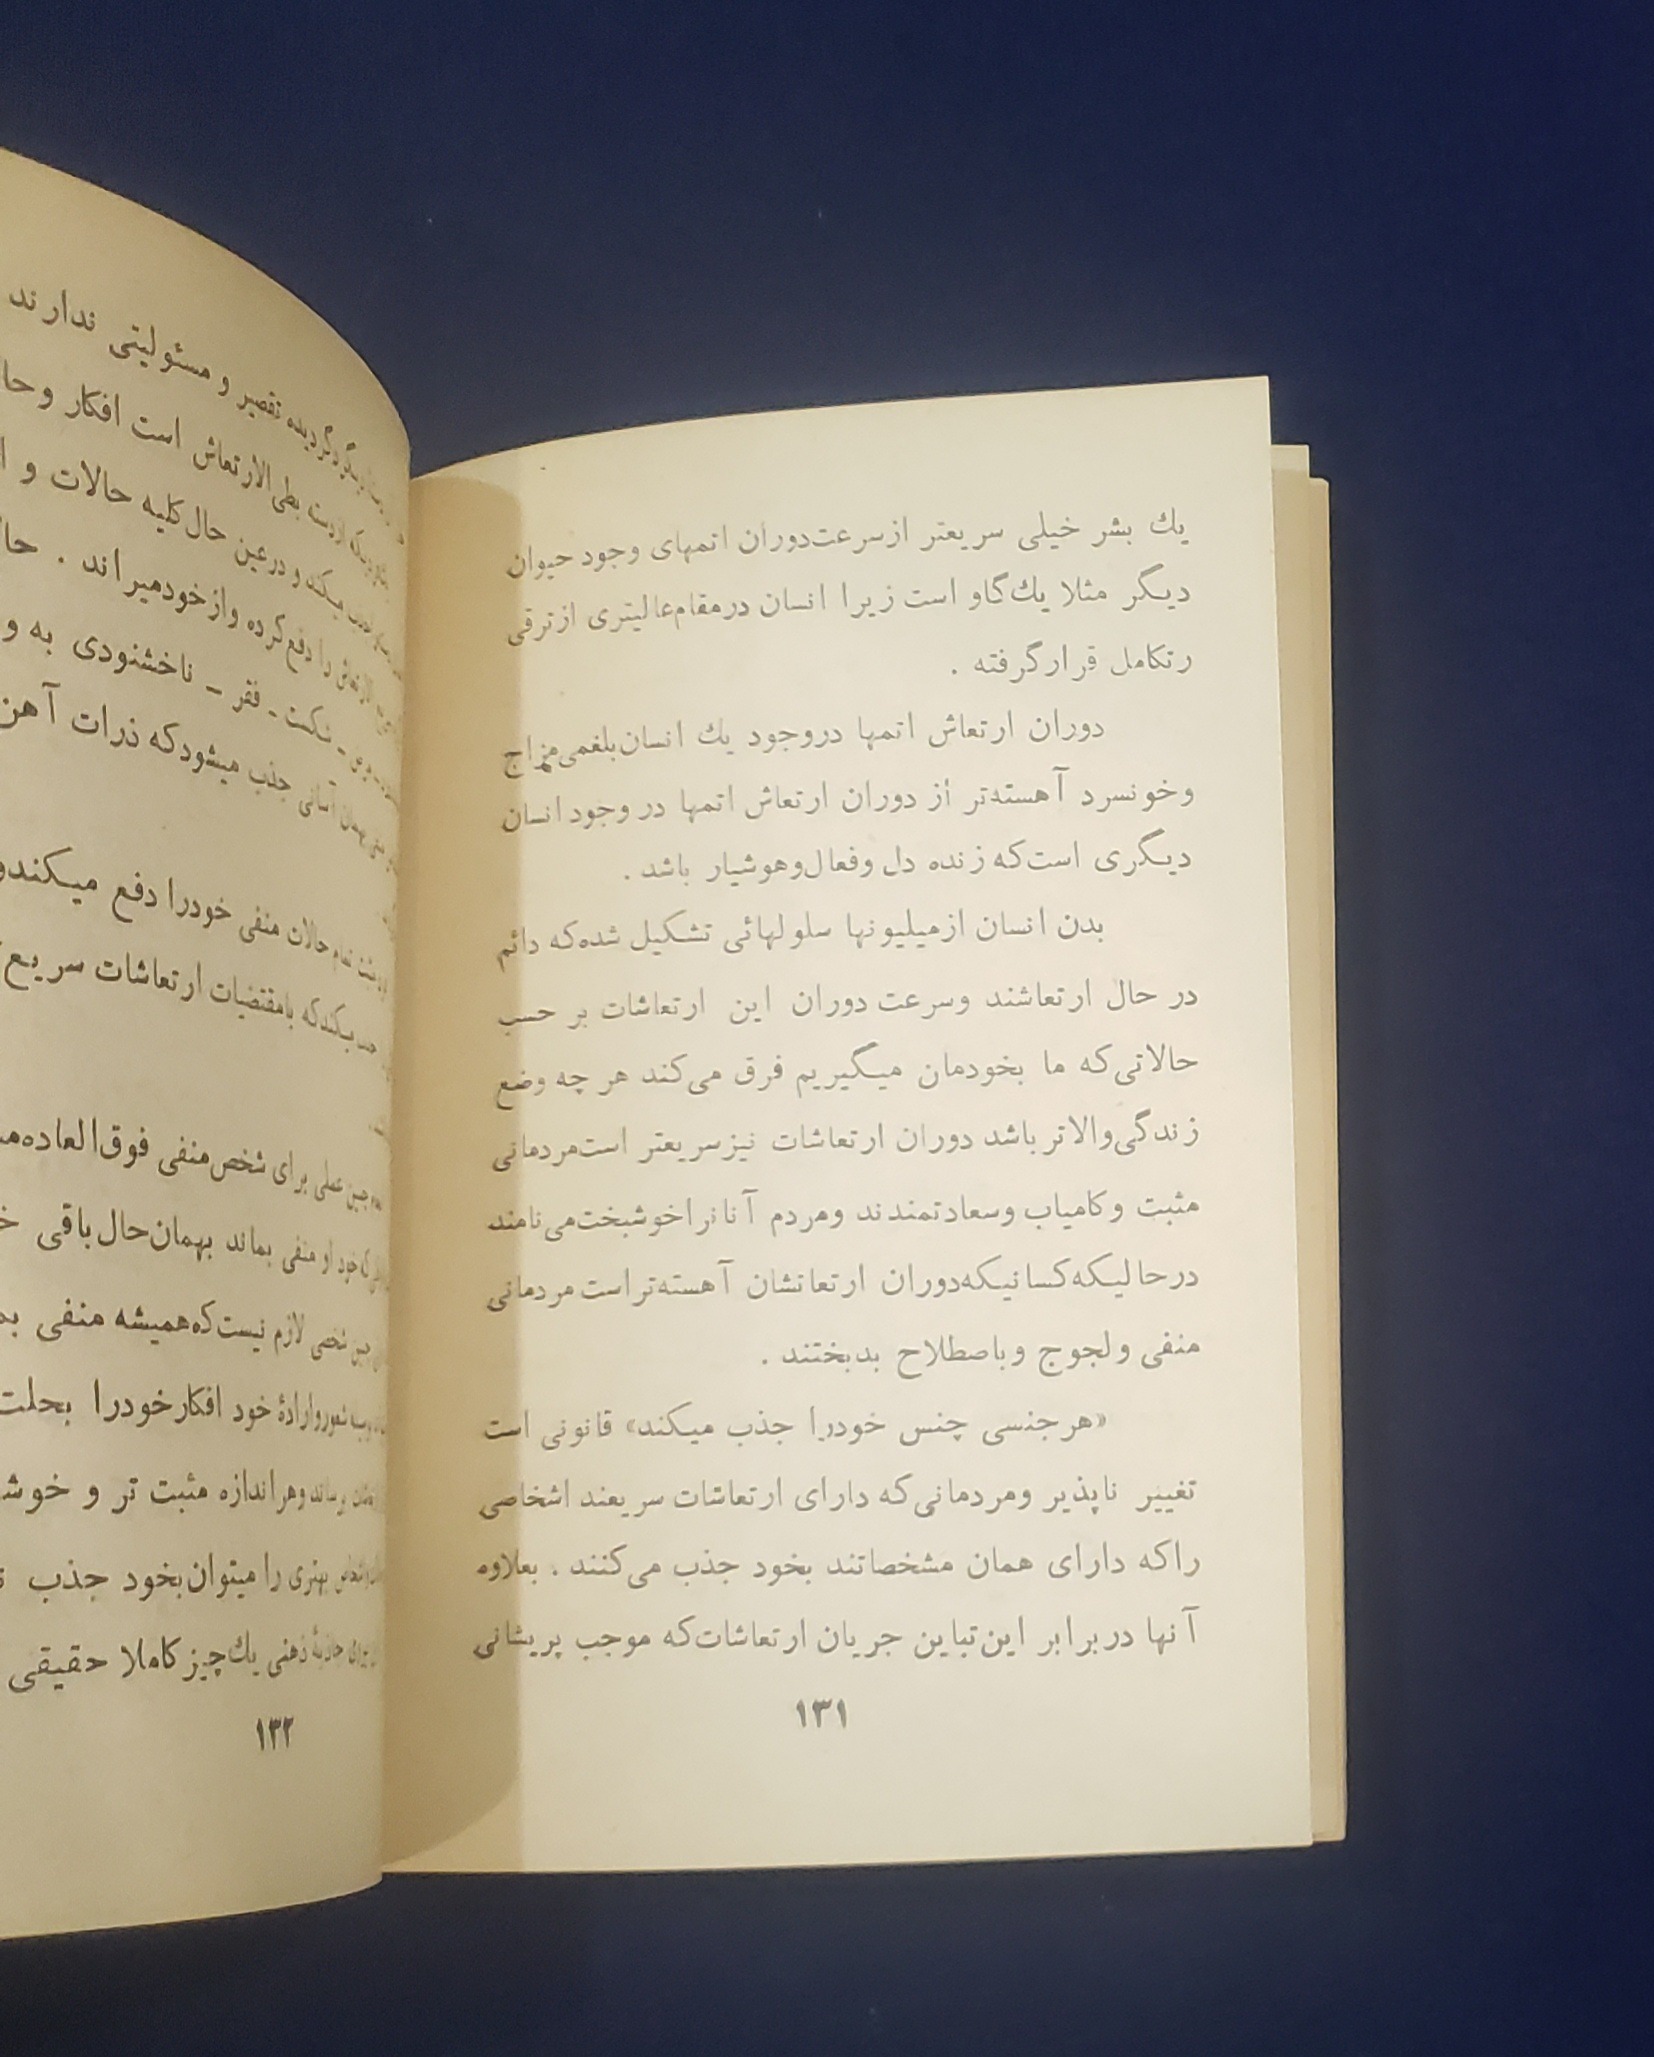 یك بشر خیلی سریعتر ازسرعت‌دوران اتمهای وجود حیوان
دیگر مثلا یك‌گاو است زیرا انسان درمقام‌عالیتری ازترقی
رتکامل قرارگرفته .
دوران ارتعاش اتمها دروجود یك انسان‌بلغمی‌مزاج
وخونسرد آهسته‌تر از دوران ارتعاش اتمها در وجود انسان
دیگری است‌که زنده دل وفعال‌وهوشیار باشد .
بدن انسان ازمیلیونها سلولهائی تشکیل شده‌که دائم
در حال ارتعاشند وسرعت دوران این ارتعاشات بر حسب
حالاتی‌که ما بخودمان میگیریم فرق می‌کند هر چه وضع
زندگی‌والاتر باشد دوران ارتعاشات نیزسریعتر است‌مردمانی
مثبت وکامیاب وسعادتمندند ومردم آنانراخوشبخت‌می‌نامند
درحالیکه‌کسانیکه‌دوران ارتعاتشان آهسته‌تراست مردمانی
منفی ولجوج وباصطلاح بدبختند .
«هرجنسی چنس خودرا جذب میکند» قانونی است
تغییر ناپذیر ومردمانی‌که دارای ارتعاشات سریعند اشخاصی
راکه دارای همان مشخصاتند بخود جذب می‌کنند . بعلاوه
آنها دربرابر این‌تباین جریان ارتعاشات‌که موجب پریشانی
۱۳۱
گردیده تقصیر و مسئولیتی ندارند
بطی‌الارتعاش است افکار وحا
میکند و درعین حال‌کلیه حالات و ا
را دفع‌کرده وازخودمیراند . حا
نکبت ـ فقر ـ ناخشنودی به و
آسانی جذب میشودکه ذرات آهن
تمام حالات منفی خودرا دفع میکندو
که بامقتضیات ارتعاشات سریع
چنین عملی برای شخص‌منفی فوق‌العاده‌م
خود او منفی بماند بهمان‌حال‌باقی خ
شخصی لازم نیست‌که‌همیشه منفی بم
شعوروارادهٔ خود افکارخودرا بحلت
برساند وهراندازه مثبت تر و خوش
بهتری را میتوان‌بخود جذب
جاذبهٔ ذهنی یك‌چیزکاملا حقیقی
۱۳۲